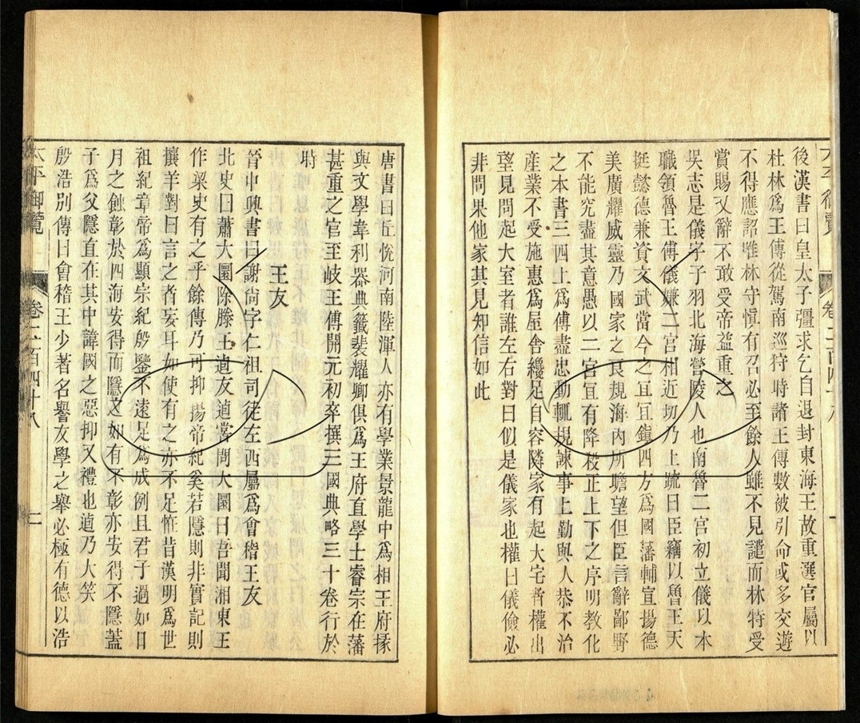 太平御覽
卷二百四十八
後漢書曰皇太子彊求乞自退封東海王故重選官屬以
杜林爲王傅從駕南巡狩時諸王傅數被引命或多交遊
不得應詔唯林守愼有召必至餘人雖不見譴而林特受
賞賜又辭不敢受帝益重之
吳志是儀字子羽北海營陵人也南魯二宮初立儀以本
職領魯王傅儀嫌二宮相近切乃上疏曰臣竊以魯王天
挺懿德兼資文武當今之宜宜鎭四方爲國藩輔宣揚德
美廣耀威靈乃國家之良規海內所瞻望但臣言辭鄙野
不能究盡其意愚以二宮宜有降殺正上下之序明教化
之本書三四上爲傅盡忠動輒規諫事上勤與人恭不治
産業不受施惠爲屋舍纔足自容隣家有起大宅者權出
望見問起大室者誰左右對曰似是儀家也權曰儀儉必
非問果他家其見知信如此
唐書曰丘悅河南陸渾人亦有學業景龍中爲相王府掾
與文學韋利器典籤裴耀卿俱爲王府直學士睿宗在藩
甚重之官至岐王傅開元初卒撰三國典略三十卷行於
時
王友
晉中興書曰謝尙字仁祖司徒左西屬爲會稽王友
北史曰蕭大圜除滕王逌友逌嘗問大圜曰吾聞湘東王
作梁史有之乎餘傳乃可抑揚帝紀奚若隱則非實記則
攘羊對曰言之者妄耳如使有之亦不足恠昔漢明爲世
祖紀章帝爲顯宗紀殷鑒不遠足爲成例且君子過如日
月之蝕彰於四海安得而隱之如有不彰亦安得不隱蓋
子爲父隱直在其中諱國之惡抑又禮也逌乃大笑
殷浩別傳曰會稽王少著名譽友學之舉必極有德以浩
太平御覽
卷二百四十八
二